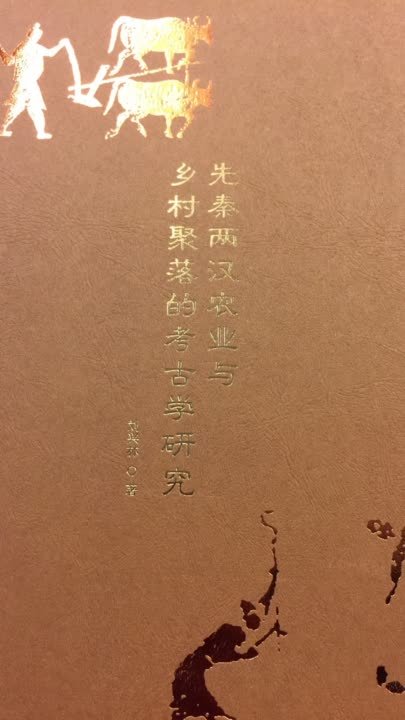 先秦两汉农业与
乡村聚落的考古学研究
刘兴林◎著